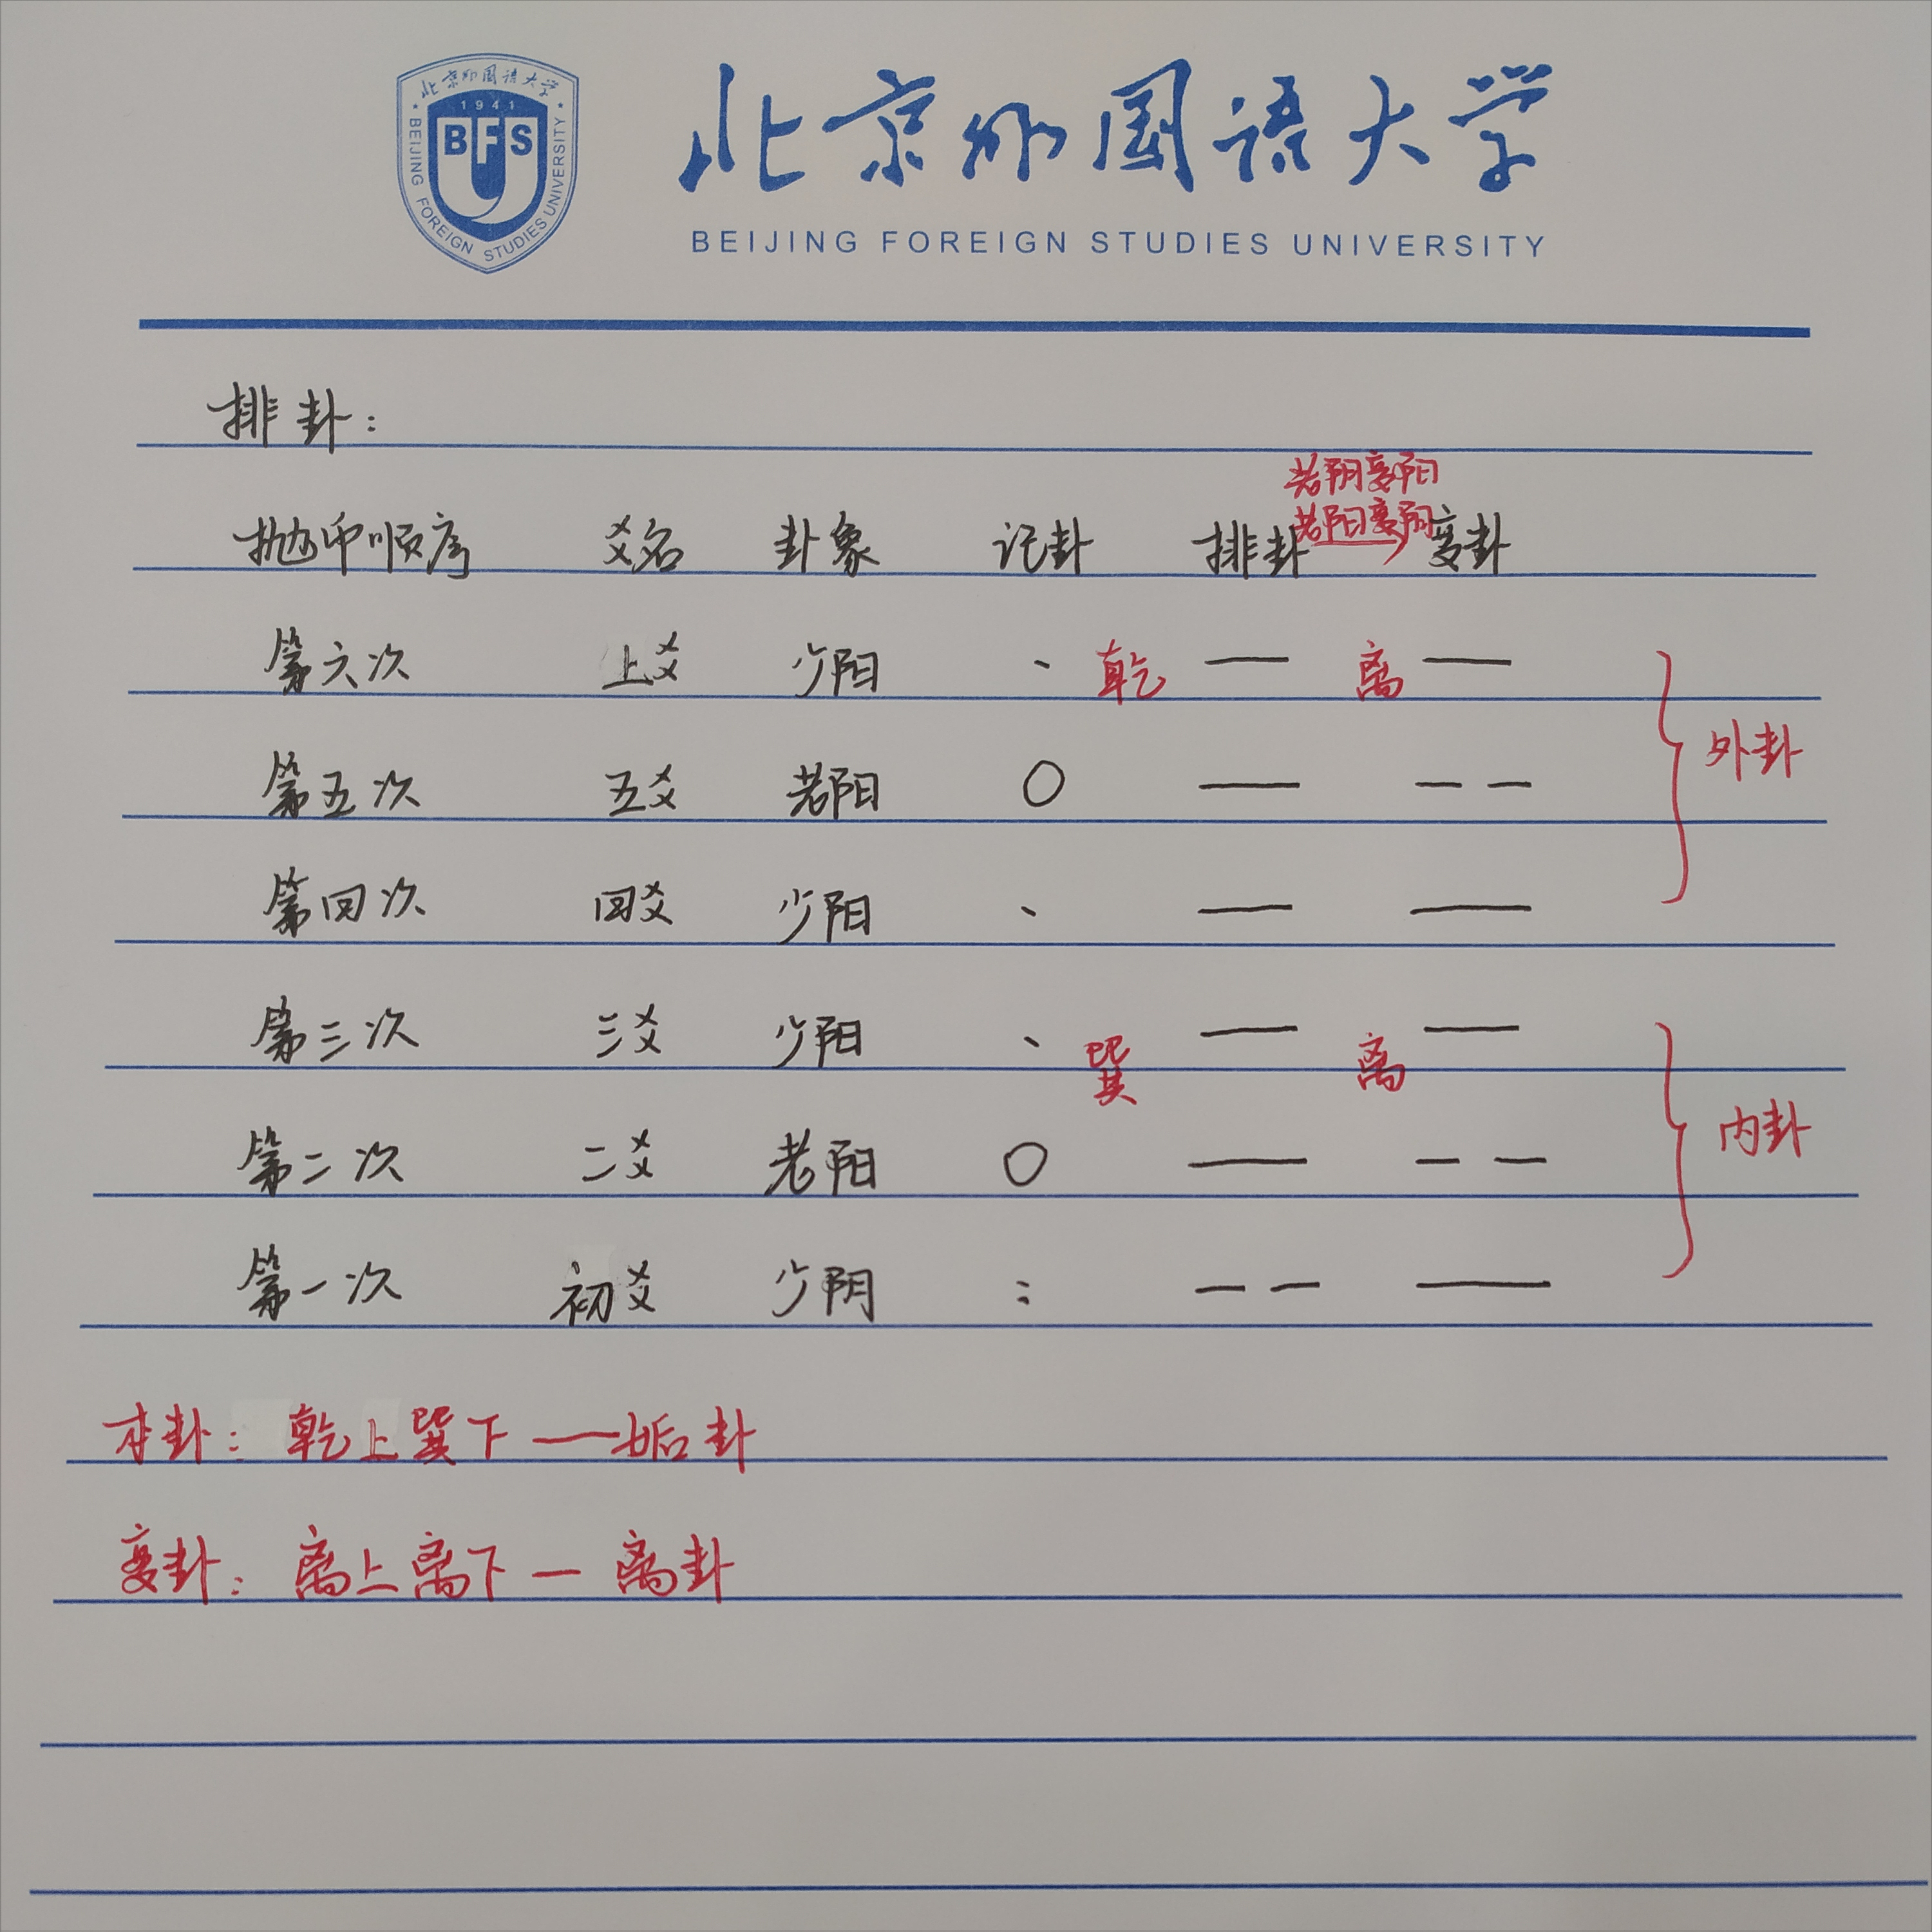 北京外国语大学
1941
BFSU
BEIJING FOREIGN STUDIES UNIVERSITY
北京外国语大学
BEIJING FOREIGN STUDIES UNIVERSITY
排卦:
老阴变阳
老阳变阴
抛币顺序 爻名 卦象 记卦 排卦 变卦
第六次 上爻 少阳 、 乾 — 离 —
外卦
第五次 五爻 老阳 ○ — — —
第四次 四爻 少阳 、 — —
第三次 三爻 少阳 、 巽 — 离 —
内卦
第二次 二爻 老阳 ○ — — —
第一次 初爻 少阴 : — — —
本卦: 乾上巽下——姤卦
变卦: 离上离下—离卦